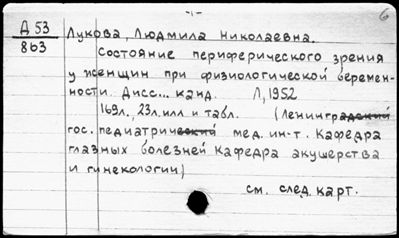 -1-
б
Д 53 Лукова, Людмила Николаевна.
863
Состояние периферического зрения
у женщин при физиологической беремен-
ности. Дисс... канд. Л, 1952
169л., 23л. илл и табл. (Ленинградский
гос. педиатрический мед. ин-т. Кафедра
глазных болезней Кафедра акушерства
и гинекологии)
см. след. карт.